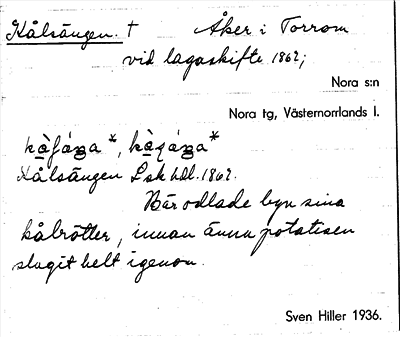 Kålsängen. † Åker i Torrom
vid lagaskifte 1862;
Nora s:n
Nora tg, Västernorrlands l.
Kålsängen Lsk hdl. 1862.
Där odlade byn sina
kålrötter, innan ännu potatisen
slagit helt igenom.
Sven Hiller 1936.